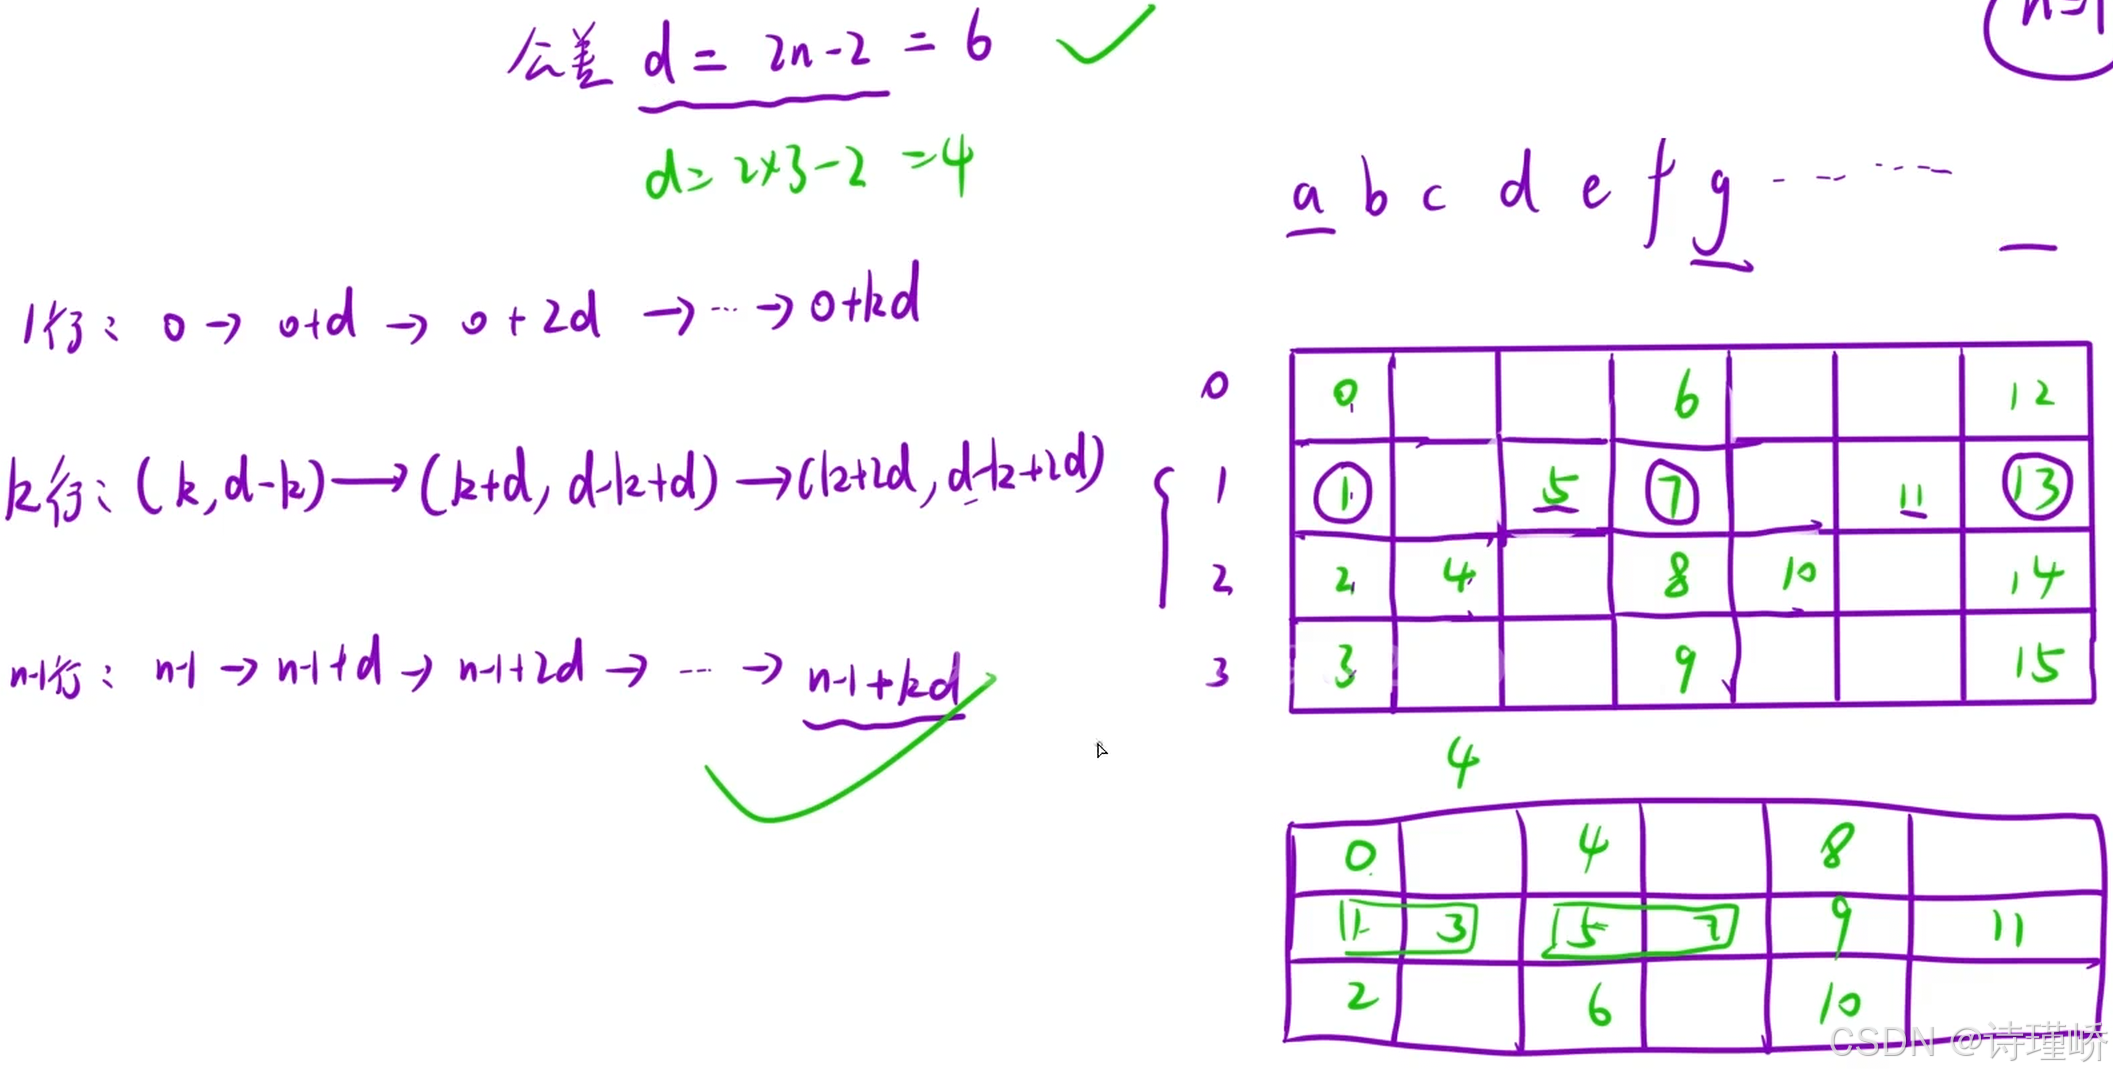 公差 d = 2n-2 = 6
d = 2×3-2 = 4
1行: 0 → 0+d → 0+2d → ... → 0+kd
k行: (k, d-k) → (k+d, d-k+d) → (k+2d, d-k+2d)
n-1行: n-1 → n-1+d → n-1+2d → ... → n-1+kd
a b c d e f g ......
0 0 6 12
1 1 5 7 11 13
2 2 4 8 10 14
3 3 9 15
4
0 4 8
1 3 5 7 9 11
2 6 10
CSDN @诗瑾峤